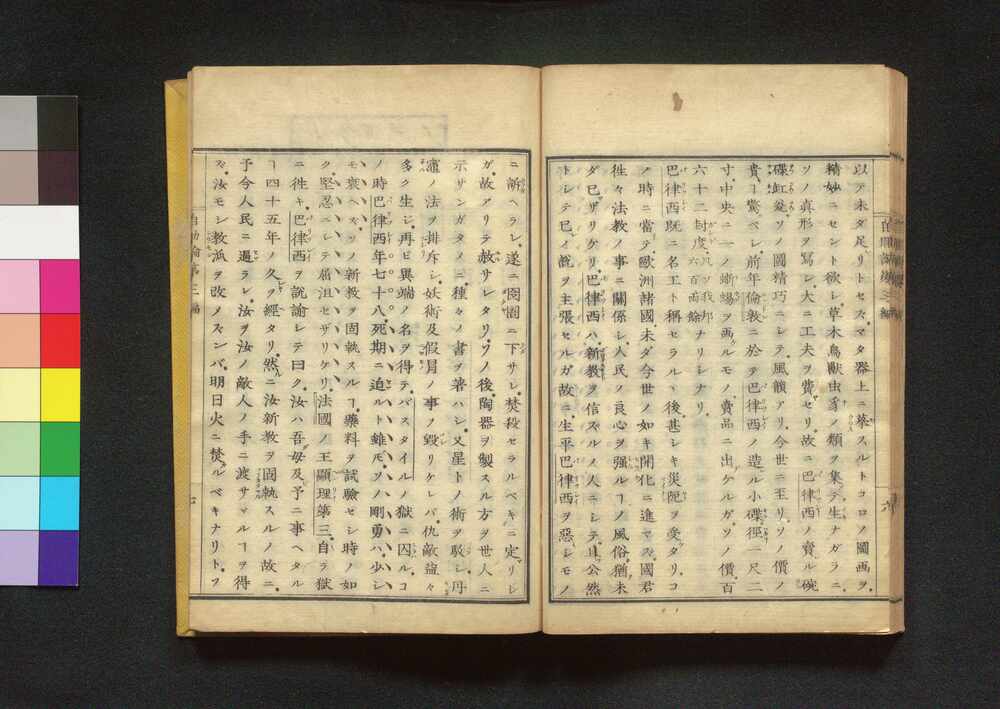 以テ未ダ足リトセズ。マタ器上ニ摹スルトコロノ圖画ヲ。
精妙ニセント欲シ。草木鳥獸虫豸ノ類ヲ集テ。生ナガラニ。
ソノ真形ヲ寫シ。大ニ工夫ヲ費セリ。故ニ巴律西ノ賣ル碗
碟缸瓮。ソノ圖精巧ニシテ風韻アリ。今世ニ至リ。ソノ價ノ
貴ヿ驚ベシ。前年倫敦ニ於テ巴律西ノ造ル小碟徑一尺二
寸中央ニ一ノ蜥蜴ヲ画ケルモノ。賣品ニ出ケルガ。ソノ價百
六十二封度凡ソ我邦六百兩餘ナリシナリ。
巴律西既ニ名王ト稱セラル丶後。甚シキ災阨ヲ受タリ。コ
ノ時ニ當テ歐洲諸國。未ダ今世ノ如キ開化ニ進マズ。國君
徃々法教ノ事ニ關係シ。人民ノ良心ヲ强ルヿノ風俗猶未
ダ已ザリケリ。巴律西ハ新教ヲ信ズルノ人ニシテ。且公然
トシテ已ノ説ヲ主張セルガ故ニ。生平巴律西ヲ惡シモノ
ニ訴ヘラレ。遂ニ囹圄ニ下サレ。焚殺セラルベキニ定リシ
ガ。故アリテ赦サレタリ。ソノ後陶器ヲ製スル方ヲ世人ニ
示サンガタメニ。種々ノ書ヲ著ハシ。又星トノ術ヲ駁シ丹
竈ノ法ヲ排斥シ。妖術及假冒ノ事ノ毀リケレバ。仇敵益々
多ク生シ。再ビ異端ノ名ヲ得テ。バスタイルノ獄ニ囚ルコ
ノ時巴律西年七十八。死期ニ迫ルト雖モ。ソノ剛勇ハ。少シ
モ衰ヘズ。ソノ新教ヲ固執スルヿ。藥料ヲ試驗セシ時ノ如
ク。堅忍ニシテ屈沮セザリケリ。法國ノ王顯理第三自ラ獄
ニ徃キ。巴律西ヲ説諭シテ曰ク。汝ハ吾母及予ニ事ヘタル
ヿ四十五年ノ久ヲ經タリ。然ルニ汝新教ヲ固執スルノ故ニ。
予今人民ニ逼ラレ。汝ヲ汝ノ敵人ノ手ニ渡サヾルヿヲ得
ズ。汝モシ教派ヲ改メズンバ。明日火ニ焚ルベキナリトゾ
自助論第三編
七
六